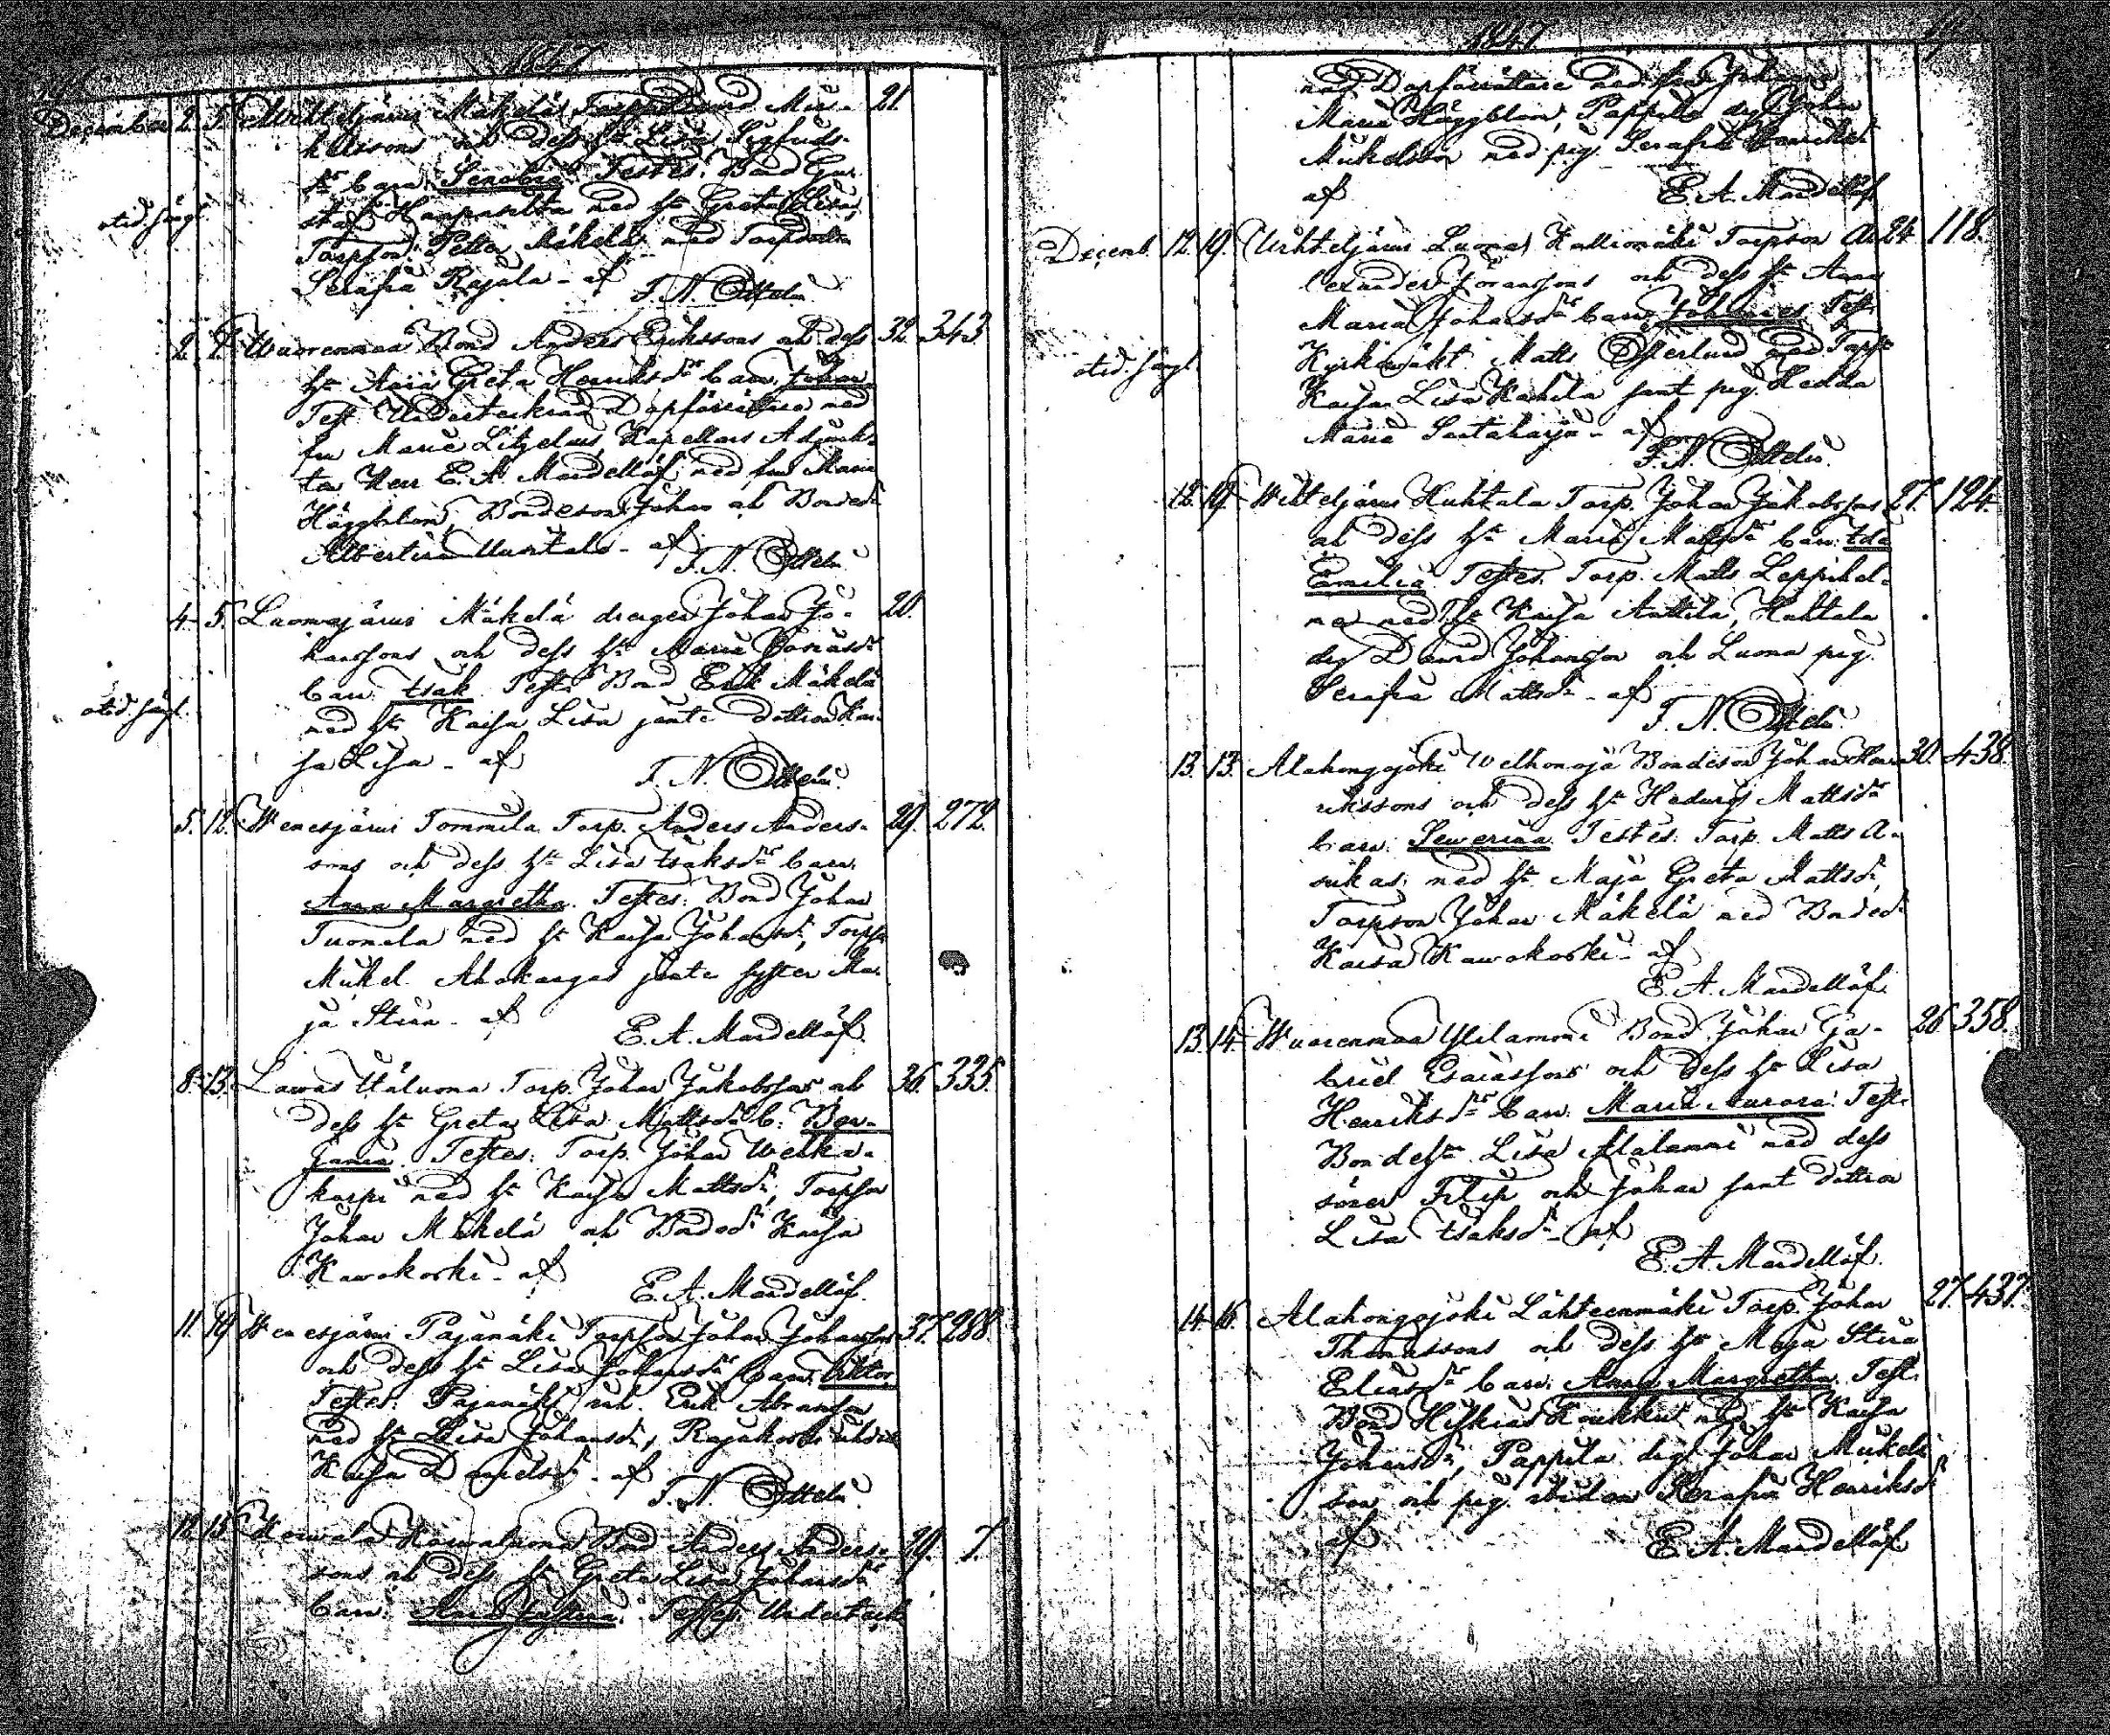 1847
December 2. 5. Wirkteljärwi Mäkelä Torpson David Mi- 21.
kelssons och dess h:u Lisa Sigfrids-
d:rs barn Senobia Testes: Bond Gu-
staf Haapaselkä med h:u Greta Lisa,
Torpson Petter Mäkelä med Torpdottr
Serafia Rajala - af
F. N. Ottelin
otid. sängl.
2. Wuorenmaa Bond Anders Erikssons och dess 32. 343
h:u Maria Greta Henriksd:rs barn Johan
Test: Undertecknad Dopförrättare med
fru Maria Litzelius, Kapellans Adjunk-
ten Herr E. A. Mandellöf med fru Maria
Häggblom, Bondeson Johan och Boneds:
Albertina Uusitalo - af
F. N. Ottelin
4. 5. Luomajärwi Mäkelä drengen Johan Jo- 20.
hanssons och dess h:u Maria Esaiasd:rs
barn Isak Test: Bond Erik Mäkelä
med h:u Kaisa Lisa jemte dottren Kai-
sa Lisa - af
F. N. Ottelin
otid. sängl.
5. 12. Wenesjärwi Tommila Torp. Anders Anders- 29. 272.
sons och dess h:u Lisa Isaksd:rs barn
Anna Margretha. Testes: Bond Johan
Tuomela med h:u Kaisa Johansd:r, Torpson
Mikel Ahokangas jemte syster Ma-
ja Stina - af
E. A. Mandellöf.
8. 13. Lawas Torp. Johan Jakobssons och 36. 335.
dess h:u Greta Lisa Mattsd:rs b: Ben-
jamin. Testes: Torp. Johan Welka-
karpi med h:u Kaisa Mattsd:r, Torpson
Johan Mäkelä och Boned:r Kaisa
Kawokoski - af
E. A. Mandellöf.
11. 19. Wenesjärwi Pajamäki Torpson Johan Johanssons 37. 288
och dess h:u Lisa Johansd:rs barn Viktor
Testes: Pajamäki inh. Erik Abramsson
med h:u Lisa Johansd:r, Rajakoski
Kaisa Danielsd:r - af
F. N. Ottelin
12. 13. Bond Anders Anders- 29. 7.
sons och dess h:u Greta Lisa Johansd:rs
barn Testes: Underteck-
1847
nad Dopförrättare med fru Johanna
Maria Häggblom, Pappila drg Johan
Mikelsson med pig. Serafia Henriksd:r
af E. A. Mandellöf
Decemb. 12. 19. Wirkteljärwi Luoma Kalliomäki Torpson A- 24 118.
lexander Göranssons och dess h:u Anna
Maria Johansd:rs barn Johannes Test:
Kyrkowäkt. Matts Österlund med Torps:
Kaisa Lisa Kahila samt pig. Hedda
Maria Santaharju - af
F. N. Ottelin.
otid. sängl.
12. 19. Wirkteljärwi Huhtala Torp. Johan Jakobssons 27. 124.
och dess h:u Maria Mattsd:rs barn Ida
Emilia Testes: Torp. Matts Leppihal-
me med h:u Kaisa Anttila, Huhtala
drg David Johansson och Luoma pig.
Serafia Mattsd:r - af
F. N. Ottelin
13. 13. Alahongojoki Welhonoja Bondeson Johan Hen- 30. 438.
rikssons och dess h:u Hedwig Mattsd:rs
barn Sewerina Testes: Torp. Matts A-
sikas med h:u Maja Greta Mattsd:r,
Torpson Johan Mäkelä med Boned:r
Kaisa Kawokoski - af
E. A. Mandellöf.
13. 14. Wuorenmaa Ylilammi Bond Johan Ga- 26 358.
briel Esaiassons och dess h:u Lisa
Henriksd:rs barn Maria Aurora. Test:
Bondeh:u Lisa Alalammi med dess
söner Filip och Johan samt dottren
Lisa Isaksd:r - af
E. A. Mandellöf.
14. 16. Alahongojoki Lähteenmäki Torp. Johan 27. 437.
Thomassons och dess h:u Maja Stina
Eliasd:rs barn Anna Margretha. Test:
Bond Hiskias Koukku med h:u Kaisa
Johansd:r, Pappila drg Johan Mikels-
son och pig. ibidem Serafia Henriksd:r
af E. A. Mandellöf